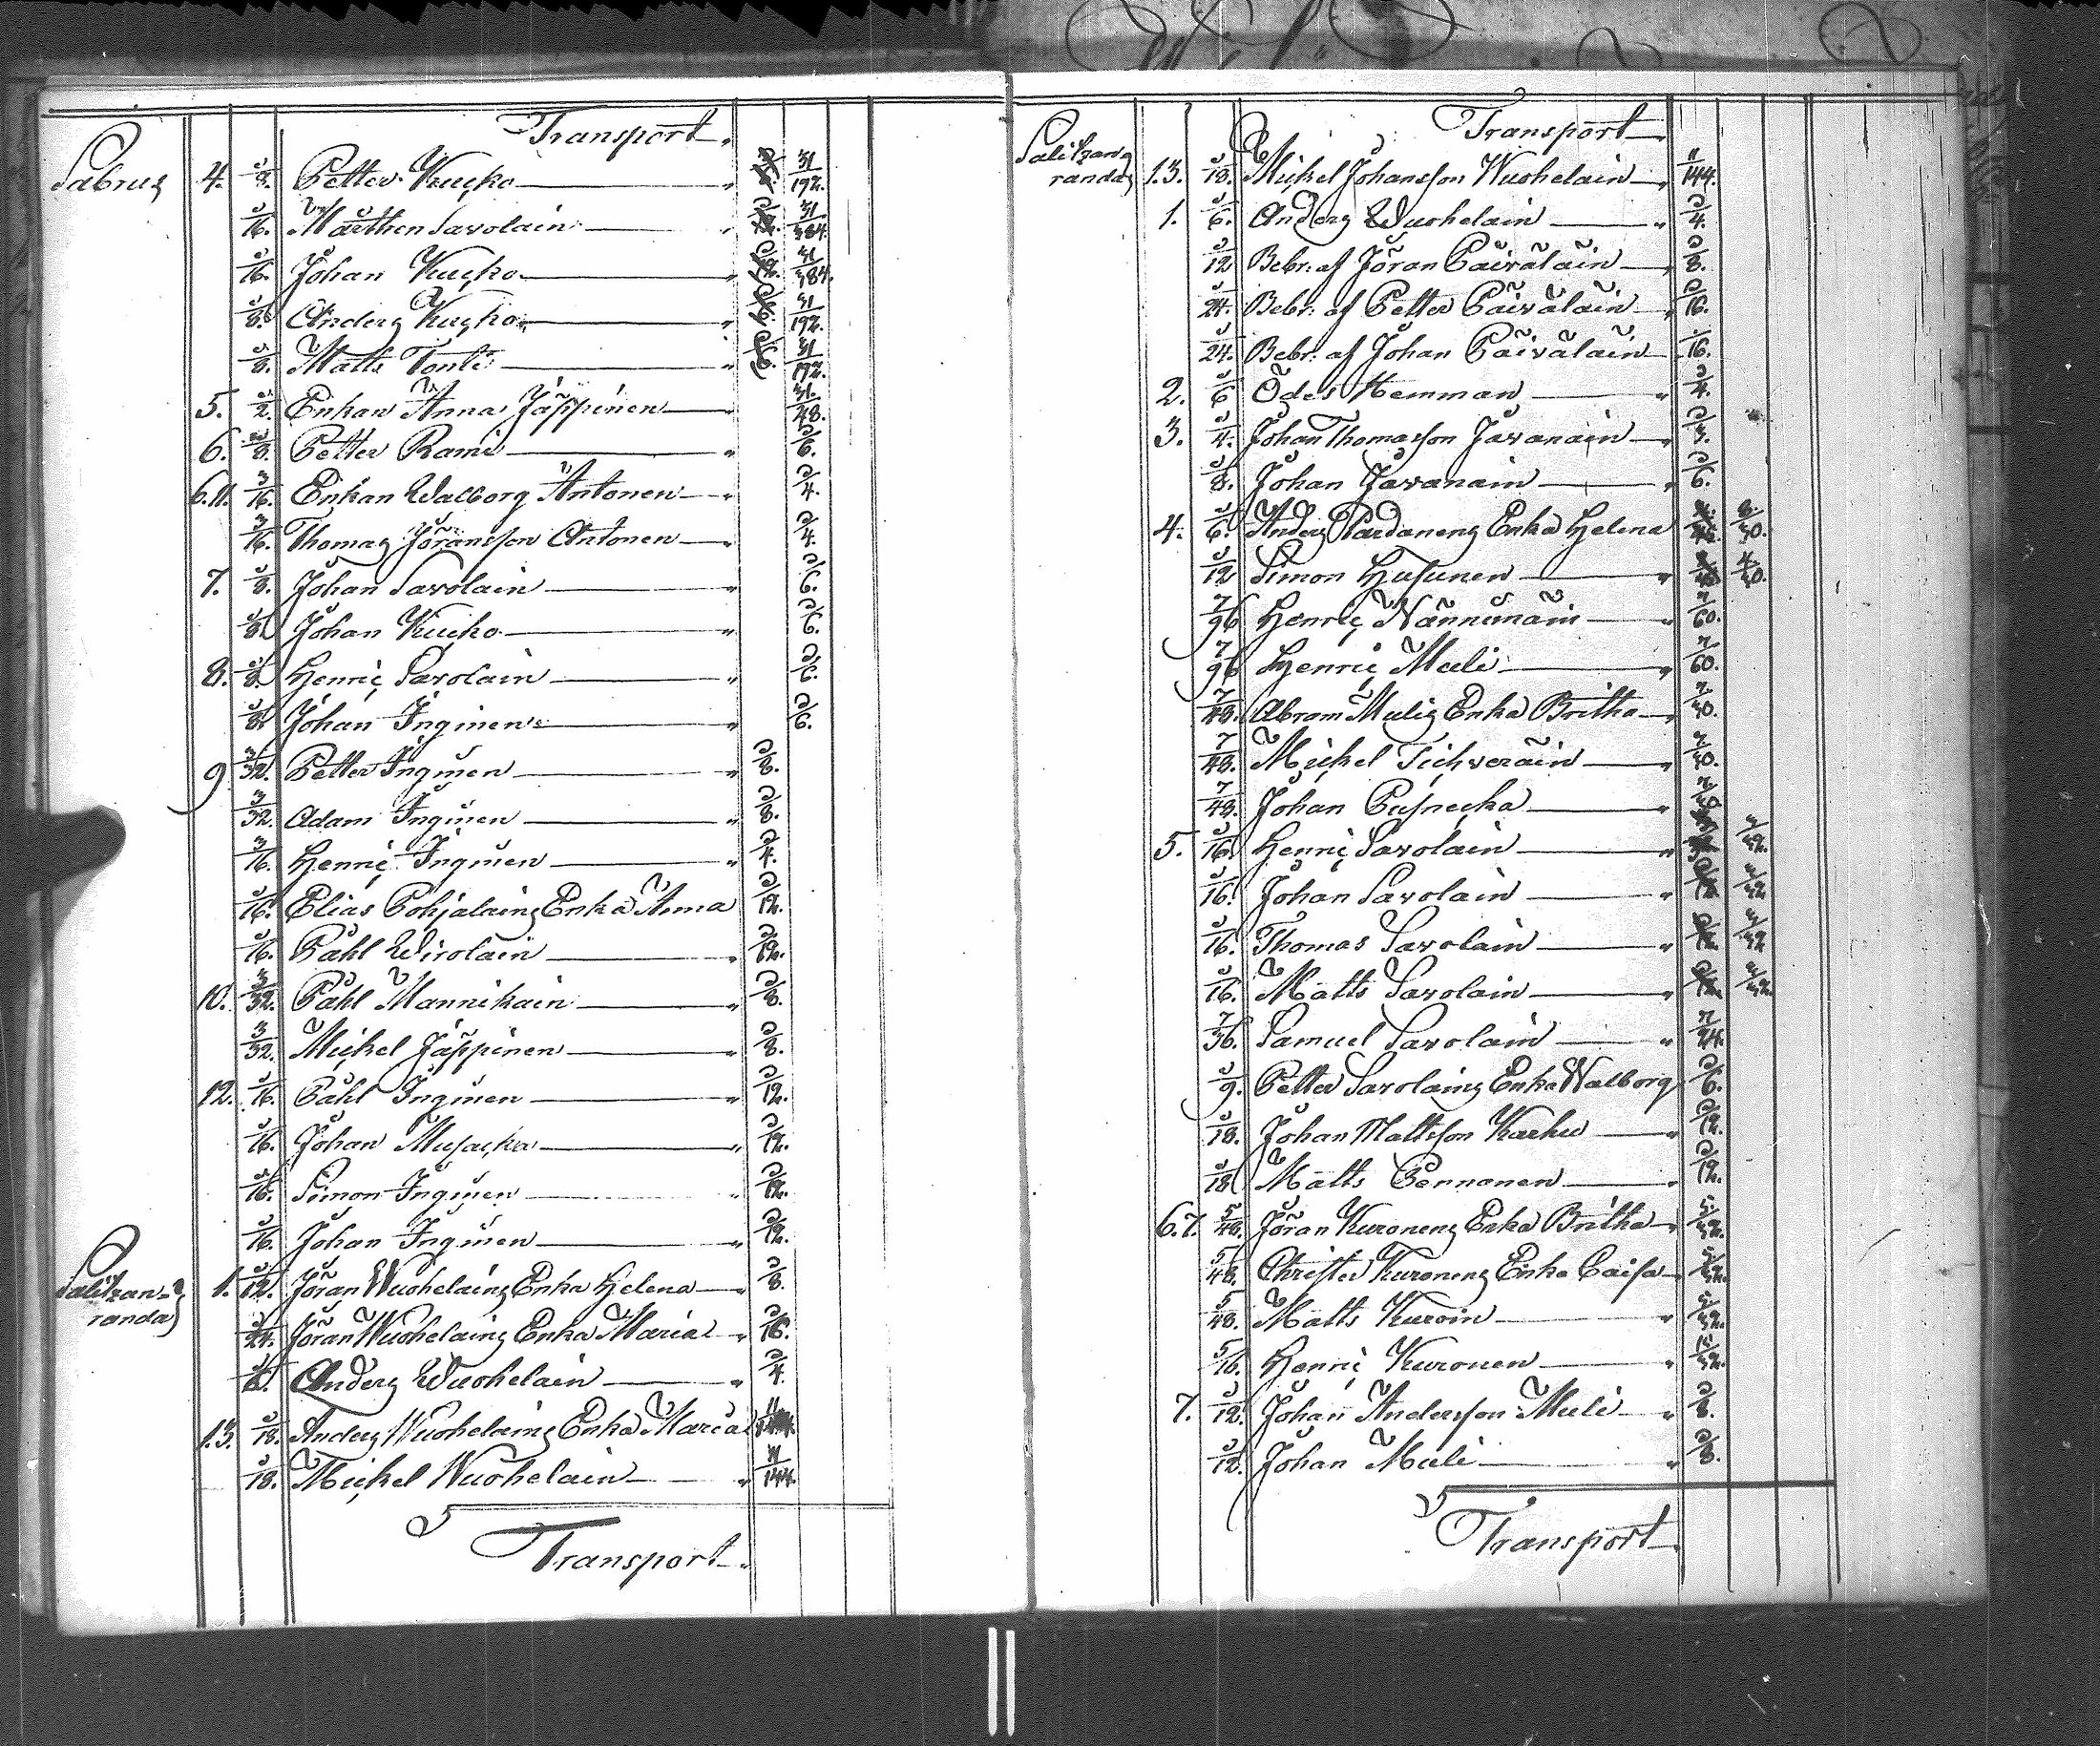 Transport
Sabrus 4. 1/8. Petter Kucko " 31/192.
1/16. Mårthen Savolain " 31/384.
1/16. Johan Kucko " 31/384.
1/8. Anders Kucko " 31/192.
1/8. Matts Tonti " 31/192.
5. 1/2. Enkan Anna Jäppinen " 31/48.
6. /8. Petter Rami " /6.
6.11. 3/16. Enkan Walborg Antonen " /4.
3/16. Thomas Jöransson Antonen " /4.
7. 1/8. Johan Savolain " /6.
1/8. Johan Kucko " /6.
8. 1/8. Henric Savolain " /6.
1/8. Johan Inginen " /6.
9 3/32. Petter Inginen " /8.
3/32. Adam Inginen " /8.
3/16. Henric Inginen " /4.
1/16. Elias Pohjalains Enka Anna /12.
1/16. Påhl Wirolain " /12.
10. 3/32. Påhl Mannikain " /8.
3/32. Mickel Jäppinen " /8.
12. 1/16. Påhl Inginen " /12.
1/16. Johan Musacka " /12.
1/16. Simon Inginen " /12.
1/16. Johan Inginen " /12.
Salitzan-
randa 1. 1/12. Jöran Wuohelains Enka Helena " /8.
1/24. Jöran Wuohelains Enka Maria " /16.
1/6. Anders Wuohelain " /4.
1.3. 1/18. Anders Wuohelains Enka Maria 11/144.
1/18. Mickel Wuohelain " 11/144.
Transport
Transport
Salitzan
randa 1.3. 1/18. Mickel Johansson Wuohelain " 11/144.
1. 1/6. Anders Wuohelain " /4.
1/12 Bebr: af Jöran Päiväläin " /8.
1/24. Bebr: af Petter Päiväläin " /16.
1/24. Bebr: af Johan Päiväläin " /16.
2. 1/6 Ödes Hemman " /4.
3. 1/4. Johan Thomasson Javanain " /3.
1/8. Johan Javanain " /6.
4. 1/6. Anders Pardanens Enka Helena /30.
1/12 Simon Husunen " 4/30.
7/96 Henric Nännimäin " 7/60.
7/96 Henric Muli " 7/60.
7/48. Abram Mulis Enka Britha " 7/30.
7/48. Mickel Tichveräin " 7/30.
7/48. Johan Pusnecka " 7/30.
5. 1/16. Henric Savolain " /32.
1/16. Johan Savolain " /32
1/16. Thomas Savolain " /32
1/16. Matts Savolain " /32.
7/36. Samuel Savolain " 7/24.
1/9. Petter Savolains Enka Walborg /6.
1/18. Johan Mattsson Karhu " /12.
1/18 Matts Pennonen " /12.
6.7. 5/48. Jöran Kuronens Enka Britha " 5/32.
5/48. Christer Kuronens Enka Caisa " 5/32.
5/48. Matts Kuroin " 5/32.
5/16. Henric Kuronen " 15/32.
7. 1/12. Johan Andersson Muli " /8.
1/12. Johan Muli " /8.
Transport